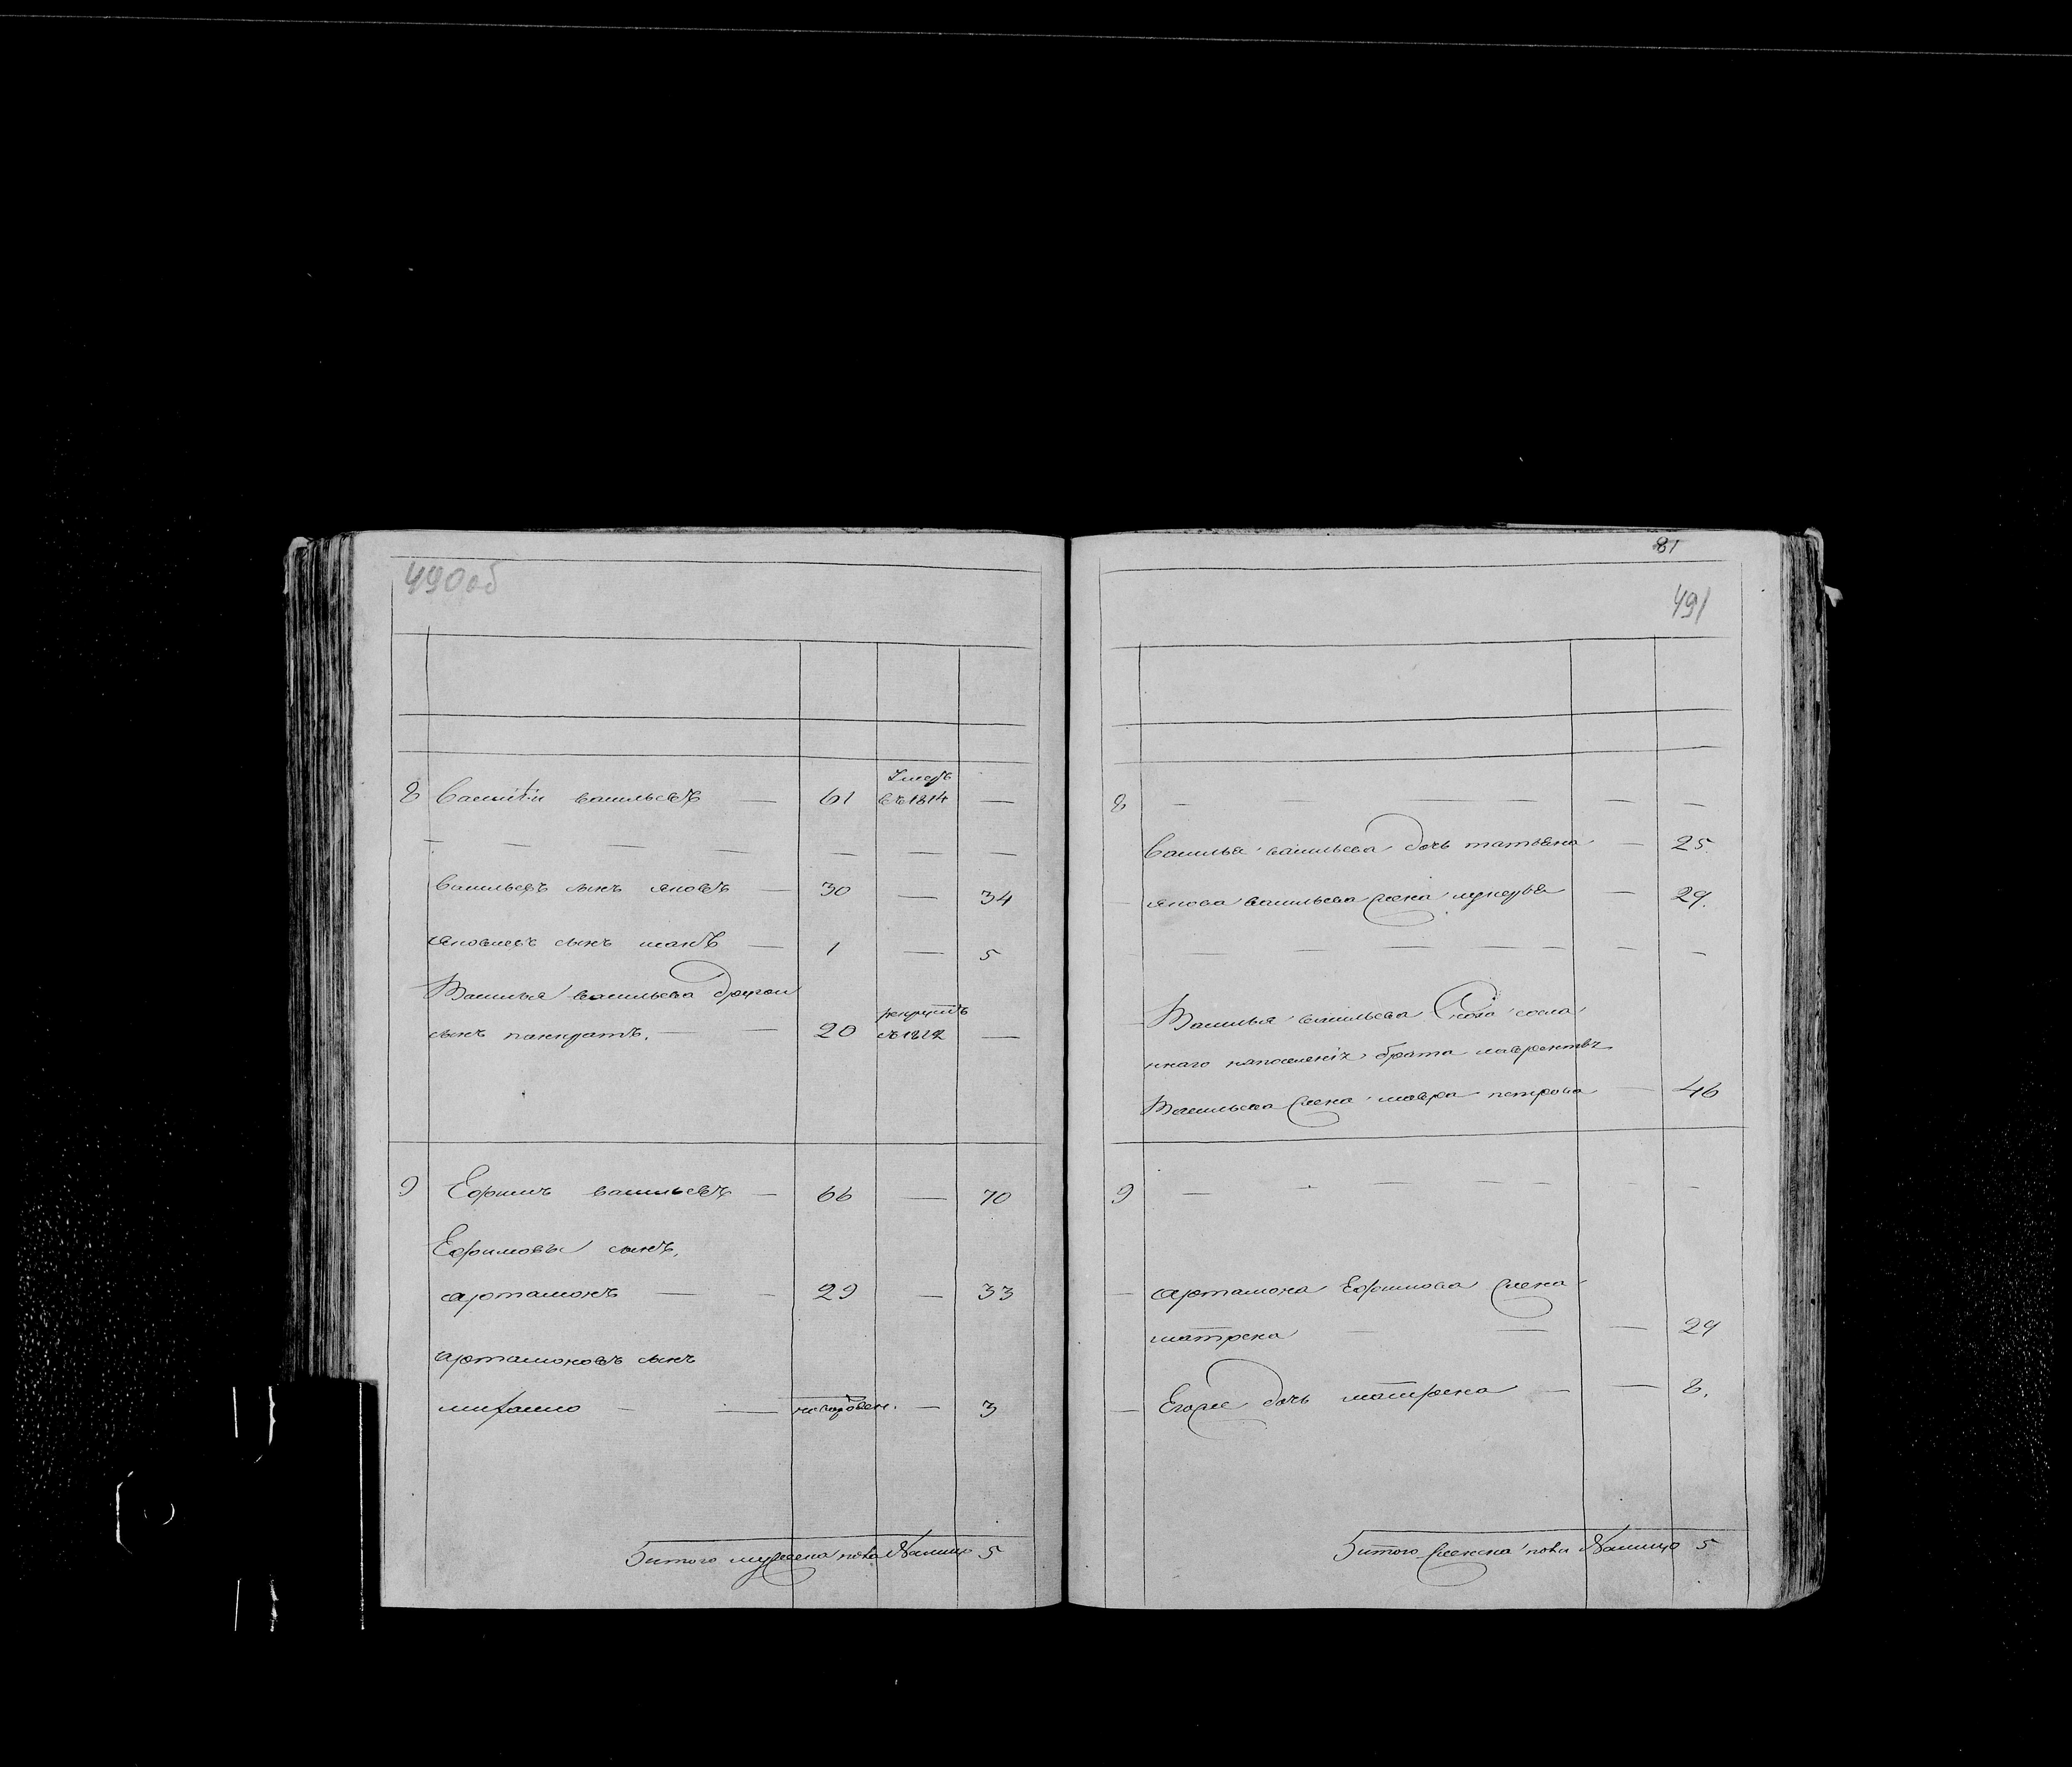 490об
8 Василiй васильевъ — 61 Умеръ въ 1814 —
— — — — — — — —
васильевъ сынъ яковъ — 30 — 34
яковлевъ сынъ иванъ — 1 — 5
Василья васильева другой
сынъ панкратъ. — — 20 рекрутъ въ 1812 —
9 Ефимъ васильевъ — 66 — 70
Ефимовъ сынъ,
артамонъ — — 29 — 33
артамоновъ сынъ
михаило — — новорожден. — 3
итого мужеска пола Налицо 5
81
491
8 — — — — — —
Василья васильева дочь татьяна — 25.
— якова васильева жена лукерья — 29.
— — — — — — —
— Василья васильева сосла
ннаго напоселенiе брата лаврентья
Васильева жена мавра петрова — 46
9 — — — — — — —
— артамона Ефимова жена
матрена — — — 29
— Егоже дочь матрена — — 8.
итого женска пола Налицо 5